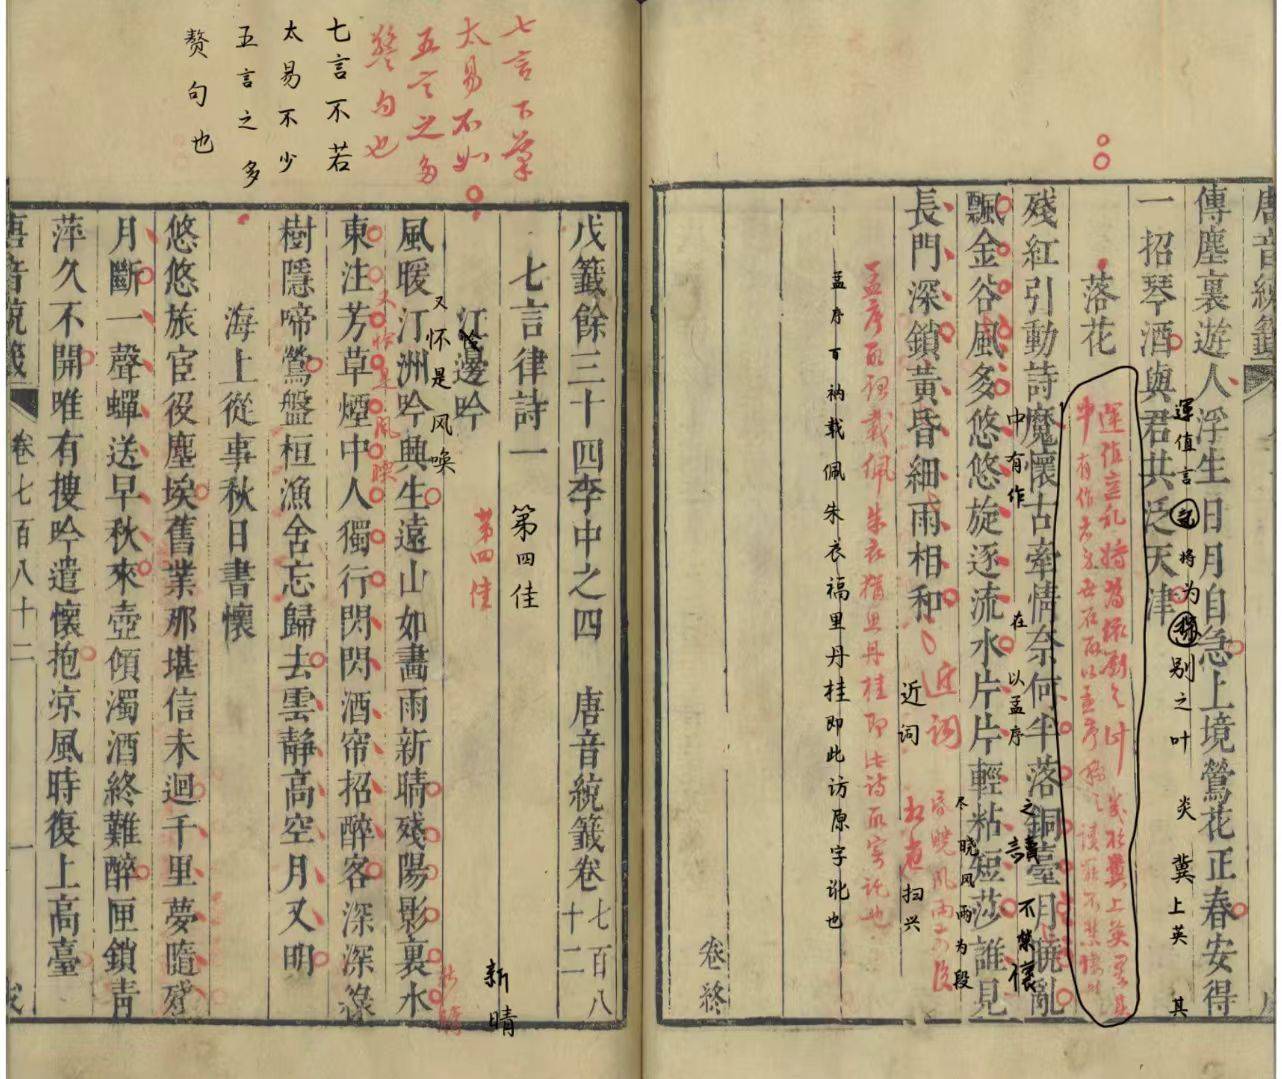 唐音統籤
傳塵裏遊人浮生日月自急上境鶯花正春安得
一招琴酒與君共泛天津
落花
殘紅引動詩魔懷古牽情奈何半落銅臺月曉亂
飄金谷風多悠悠旋逐流水片片輕粘短莎誰見
長門深鎖黃昏細雨相和
卷終
運值言
将为
别之叶
炎
冀上英
其
中有作
在
以孟序
之
不禁
尽晓风雨为段
近词
近詞
扫兴
孟序百衲载佩朱衣福里丹桂即此访原字讹也
戊籤餘三十四李中之四 唐音統籤卷七百八十二
七言律詩一
江邊吟
第四佳
第四佳
風暖汀洲吟興生遠山如畵雨新晴殘陽影裏水
東注芳草煙中人獨行閃閃酒帘招醉客深深綠
樹隱啼鶯盤桓漁舍忘歸去雲靜高空月又明
海上從事秋日書懷
悠悠旅宦役塵埃舊業那堪信未迴千里夢隨殘
月斷一聲蟬送早秋來壺傾濁酒終難醉匣鎖青
萍久不開唯有搜吟遣懷抱涼風時復上高臺
唐音統籤 卷七百八十二 一
又怀是风唤
新晴
七言下筆
太易不如
五言之多
贅句也
七言不若
太易不少
五言之多
赘句也